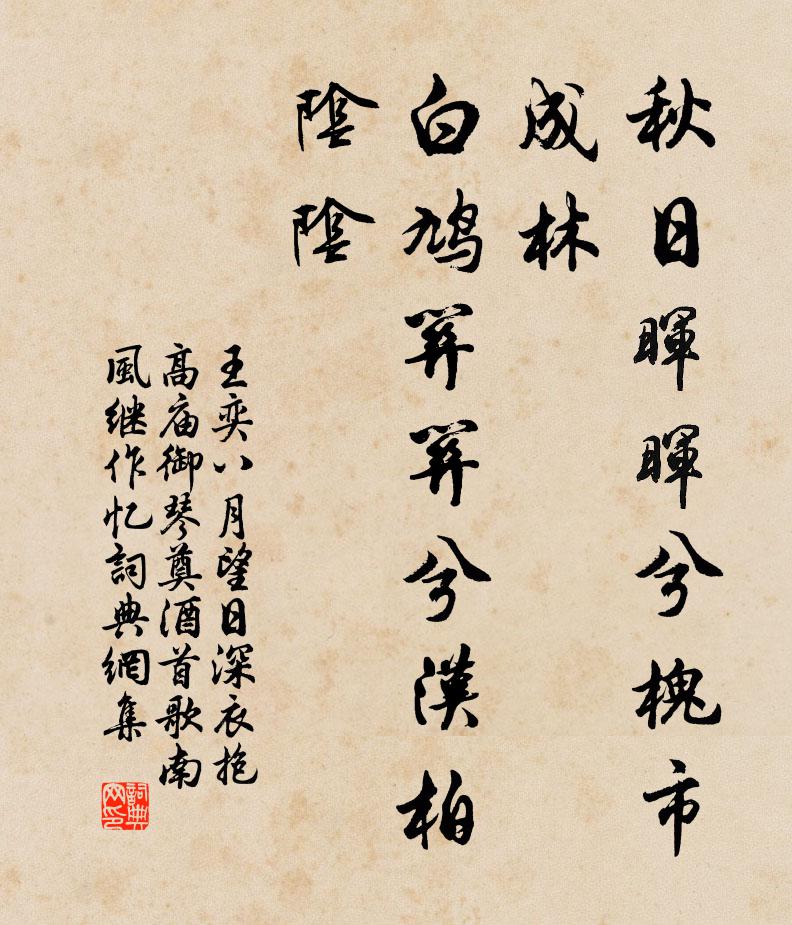 秋日暉暉兮槐市
成林
白鳩笄笄兮漢柏
陰陰
王奕八月望日深衣抱
高庙御琴奠酒首歌南
風继作忆詞典網集
詞典
网印